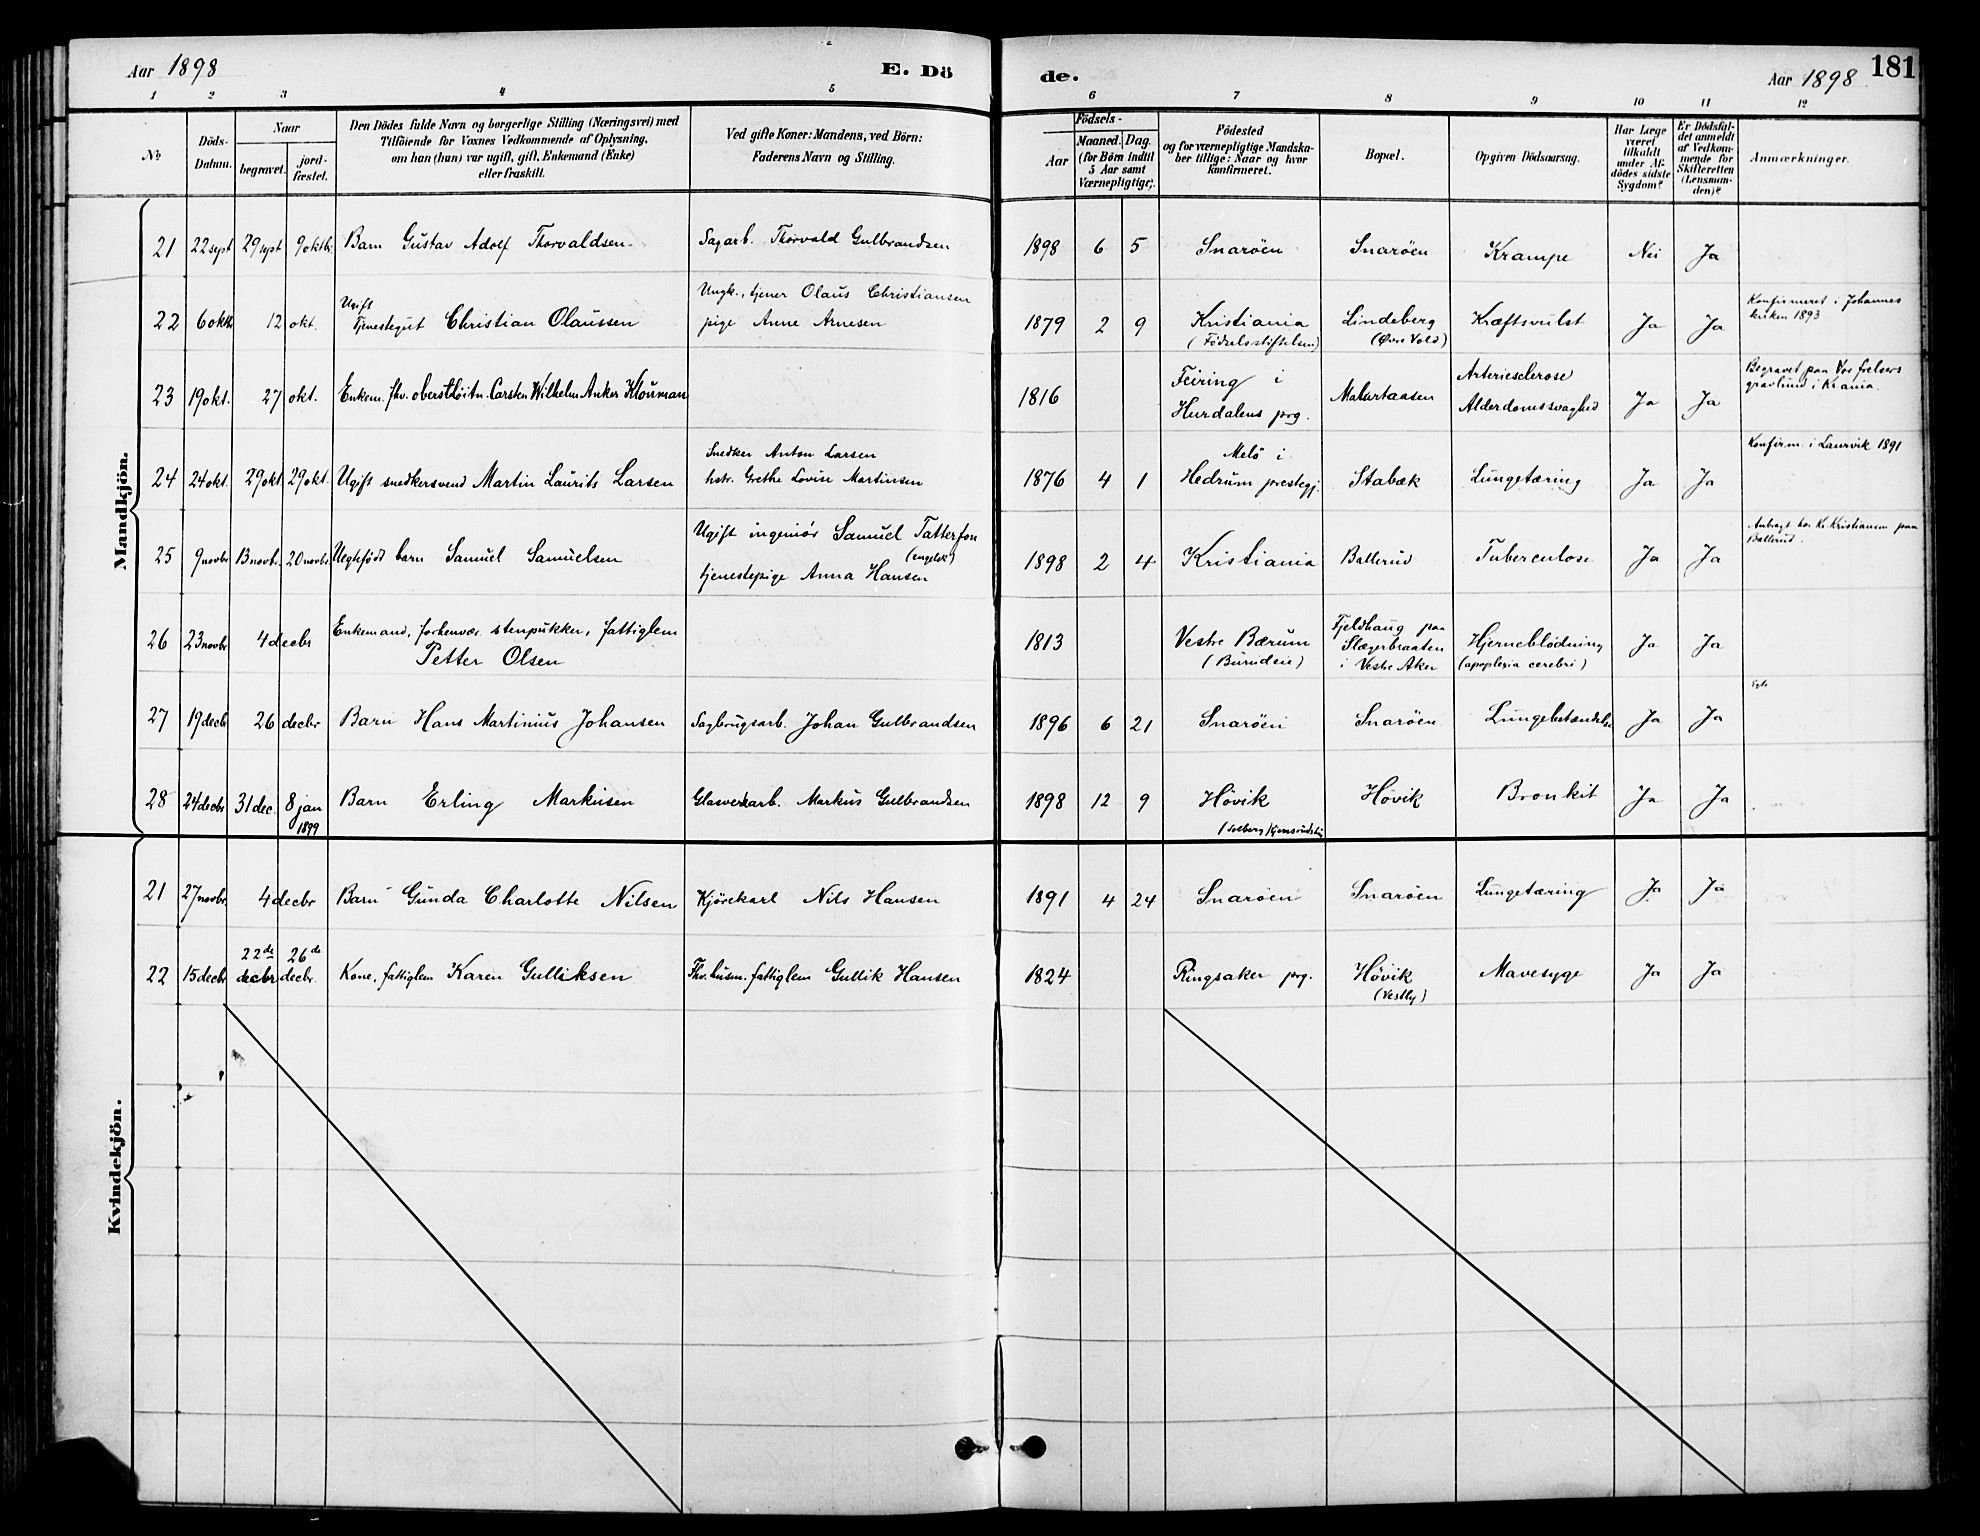 Aar 1898
E. Dö
de.
Aar 1898
181
1 2 3 4 5 6 7 8 9 10 11 12
No
Döds-Datum.
Naar
begravet.
jord-fæstet.
Den Dödes fulde Navn og borgerlige Stilling (Næringsvei) med
Tilföiende for Voxnes Vedkommende af Oplysning,
om han (hun) var ugift, gift, Enkemand (Enke)
eller fraskilt.
Ved gifte Koner: Mandens, ved Börn:
Faderens Navn og Stilling.
Födsels-
Aar
Maaned. Dag.
(for Börn indtil
5 Aar samt
Værnepligtige).
Födested
og for værnepligtige Mandska-
ber tillige: Naar og hvor
konfirmeret.
Bopæl.
Opgiven Dödsaarsag.
Har Læge
været
tilkaldt
under Af-
dödes sidste
Sygdom?
Er Dödsfal-
det anmeldt
af Vedkom-
mende for
Skifteretten
(Lensman-
den)?
Anmærkninger.
Mandkjön.
21 22 sept 29 sept 9 oktbr. Barn Gustav Adolf Thorvaldsen. Sagarb. Thorvald Gulbrandsen 1898 6 5 Snaröen Snaröen Krampe Nei Ja
Ugift
Ungk., tjener Olaus Christiansen
22 6 oktbr 12 okt. Tjenestegut Christian Olaussen pige Anne Arnesen 1879 2 9 Kristiania Lindeberg Kræftsvulst Ja Ja
(Födselsstiftelsen) (Övre Vold)
Konfirmeret i Johannes
kirken 1893
23 19 okt. 27 okt. Enkem. fhv. oberstlöitn. Carsten Wilhelm Anker Klouman 1816 Feiring i
Hurdalens prg. Arteriesclerose
Alderdomssvaghed Ja Ja
Begravet paa Vor frelsers
gravlund i Krania.
Snedker Anton Larsen
24 24 okt. 29 okt. 29 okt. Ugift snedkersvend Martin Laurits Larsen hstr. Grethe Lovise Martinsen 1876 4 1 Melö i
Hedrum prestegj. Stabæk Lungetæring Ja Ja
Konfirm. i Laurvik 1891
Ugift ingeniör Samuel
(engelsk)
25 9 novbr 13 novbr. 20 novbr. Uægtefödt barn Samuel Samuelsen tjenestepige Anna Hansen 1898 2 4 Kristiania Ballerud Tuberculose Ja Ja
Anbragt hos K. Kristiansen paa
Ballerud.
26 23 novbr 4 decbr Enkemand, forhenvær. stenpukker, fattiglem
Petter Olsen 1813 Vestre Bærum
(Burudeie) Fjeldhaug paa
i Vestre Aker Hjerneblödning
(apoplexia cerebri) Ja Ja
27 19 decbr 26 decbr Barn Hans Martinius Johansen Sagbrugsarb. Johan Gulbrandsen 1896 6 21 Snaröen Snaröen Lungebetændelse Ja Ja
28 24 decbr 31 dec. 8 jan
1899 Barn Erling Markusen Glasverkarb. Markus Gulbrandsen 1898 12 9 Hövik Hövik Bronkit Ja Ja
Kvindekjön.
21 27 novbr. 4 decbr Barn Gunda Charlotte Nilsen Kjörekarl Nils Hansen 1891 4 24 Snaröen Snaröen Lungetæring Ja Ja
22 15 decbr 22de decbr 26de decbr. Kone, fattiglem Karen Gulliksen Fhv. husm. fattiglem Gullik Hansen 1824 Ringsaker prg. Hövik
(Vestly) Mavesyge Ja Ja